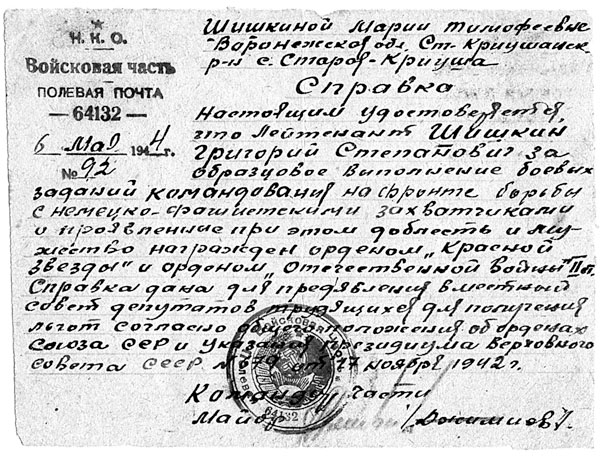 Н.К.О.
Войсковая часть
ПОЛЕВАЯ ПОЧТА
— 64132 —
6 мая 1944г.
№ 92
Шишкиной Марии Тимофеевне
Воронежской обл. Ст-Криушанск.
р-н с. Старая-Криуша
Справка
Настоящим удостоверяется,
что Лейтенант Шишкин
Григорий Степанович за
образцовое выполнение боевых
заданий командования на фронте борьбы
с немецко-фашистскими захватчиками
и проявленные при этом доблесть и му-
жество награжден орденом „Красной
Звезды" и орденом „Отечественной Войны" II ст.
Справка дана для предявления в местный
совет депутатов трудящихся для получения
льгот согласно общего положения об орденах
Союза ССР и указания президиума Верховного
совета СССР от 17 ноября 1942г.
Командир части
Майор
64132